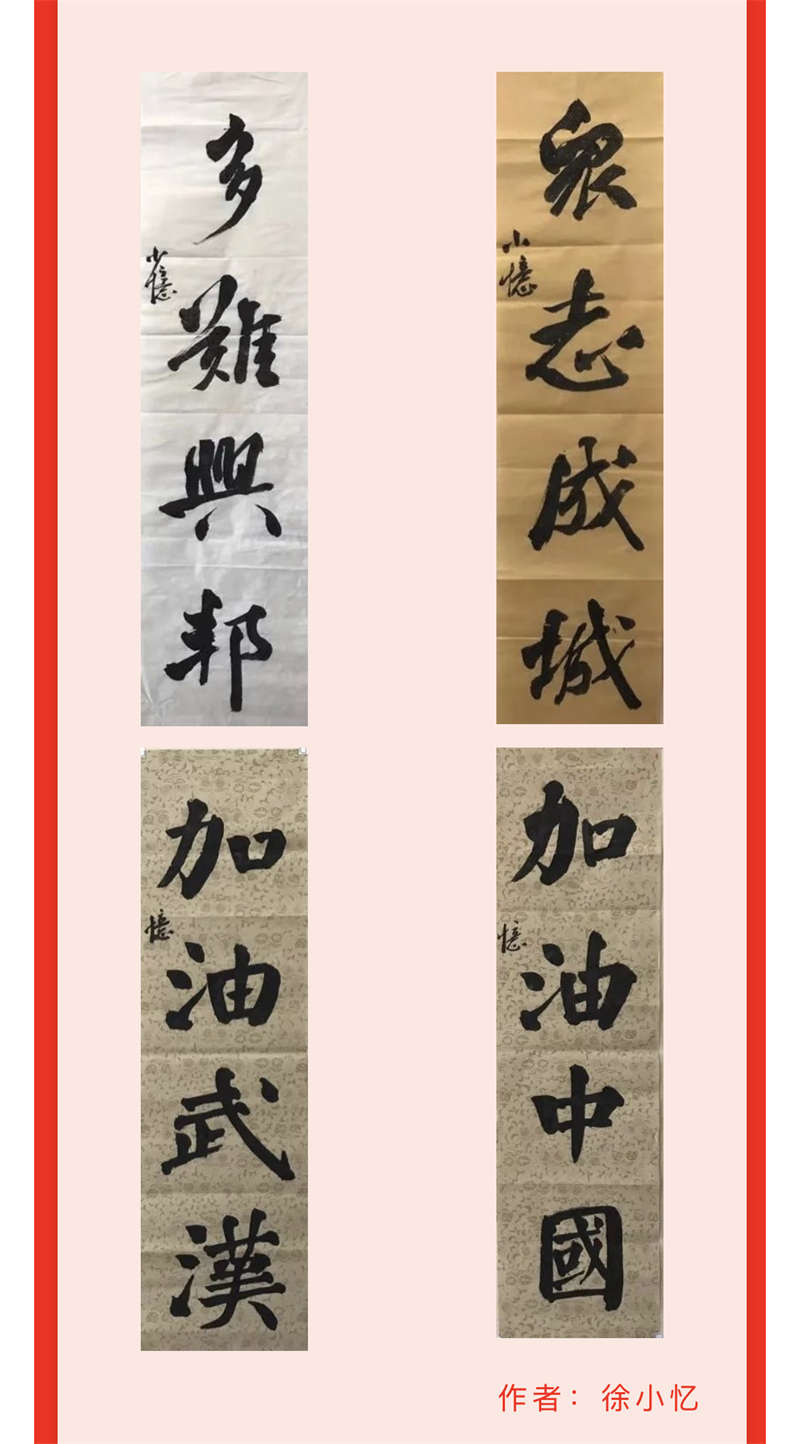 眾志成城
小憶
多難興邦
小憶
加油中國
憶
加油武漢
憶
作者：徐小忆